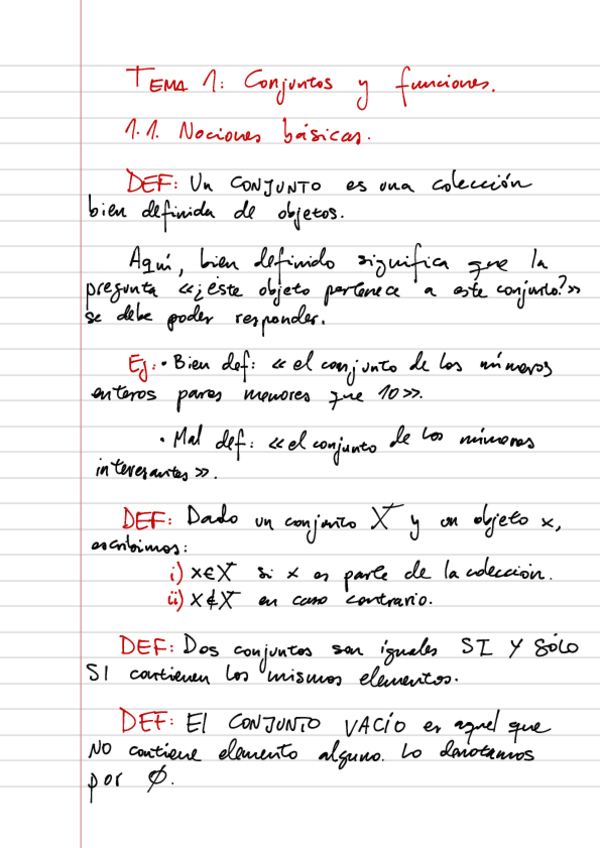 TEMA 1: Conjuntos y funciones.
1.1. Nociones básicas.
DEF: Un CONJUNTO es una colección
bien definida de objetos.
Aquí, bien definido significa que la
pregunta «¿éste objeto pertenece a este conjunto?»
se debe poder responder.
Ej: • Bien def: «el conjunto de los números
enteros pares menores que 10».
• Mal def: «el conjunto de los números
interesantes».
DEF: Dado un conjunto X y un objeto x,
escribimos:
i) x∈X si x es parte de la colección.
ii) x∉X en caso contrario.
DEF: Dos conjuntos son iguales SI Y SÓLO
SI contienen los mismos elementos.
DEF: El CONJUNTO VACÍO es aquel que
NO contiene elemento alguno. Lo denotamos
por ∅.